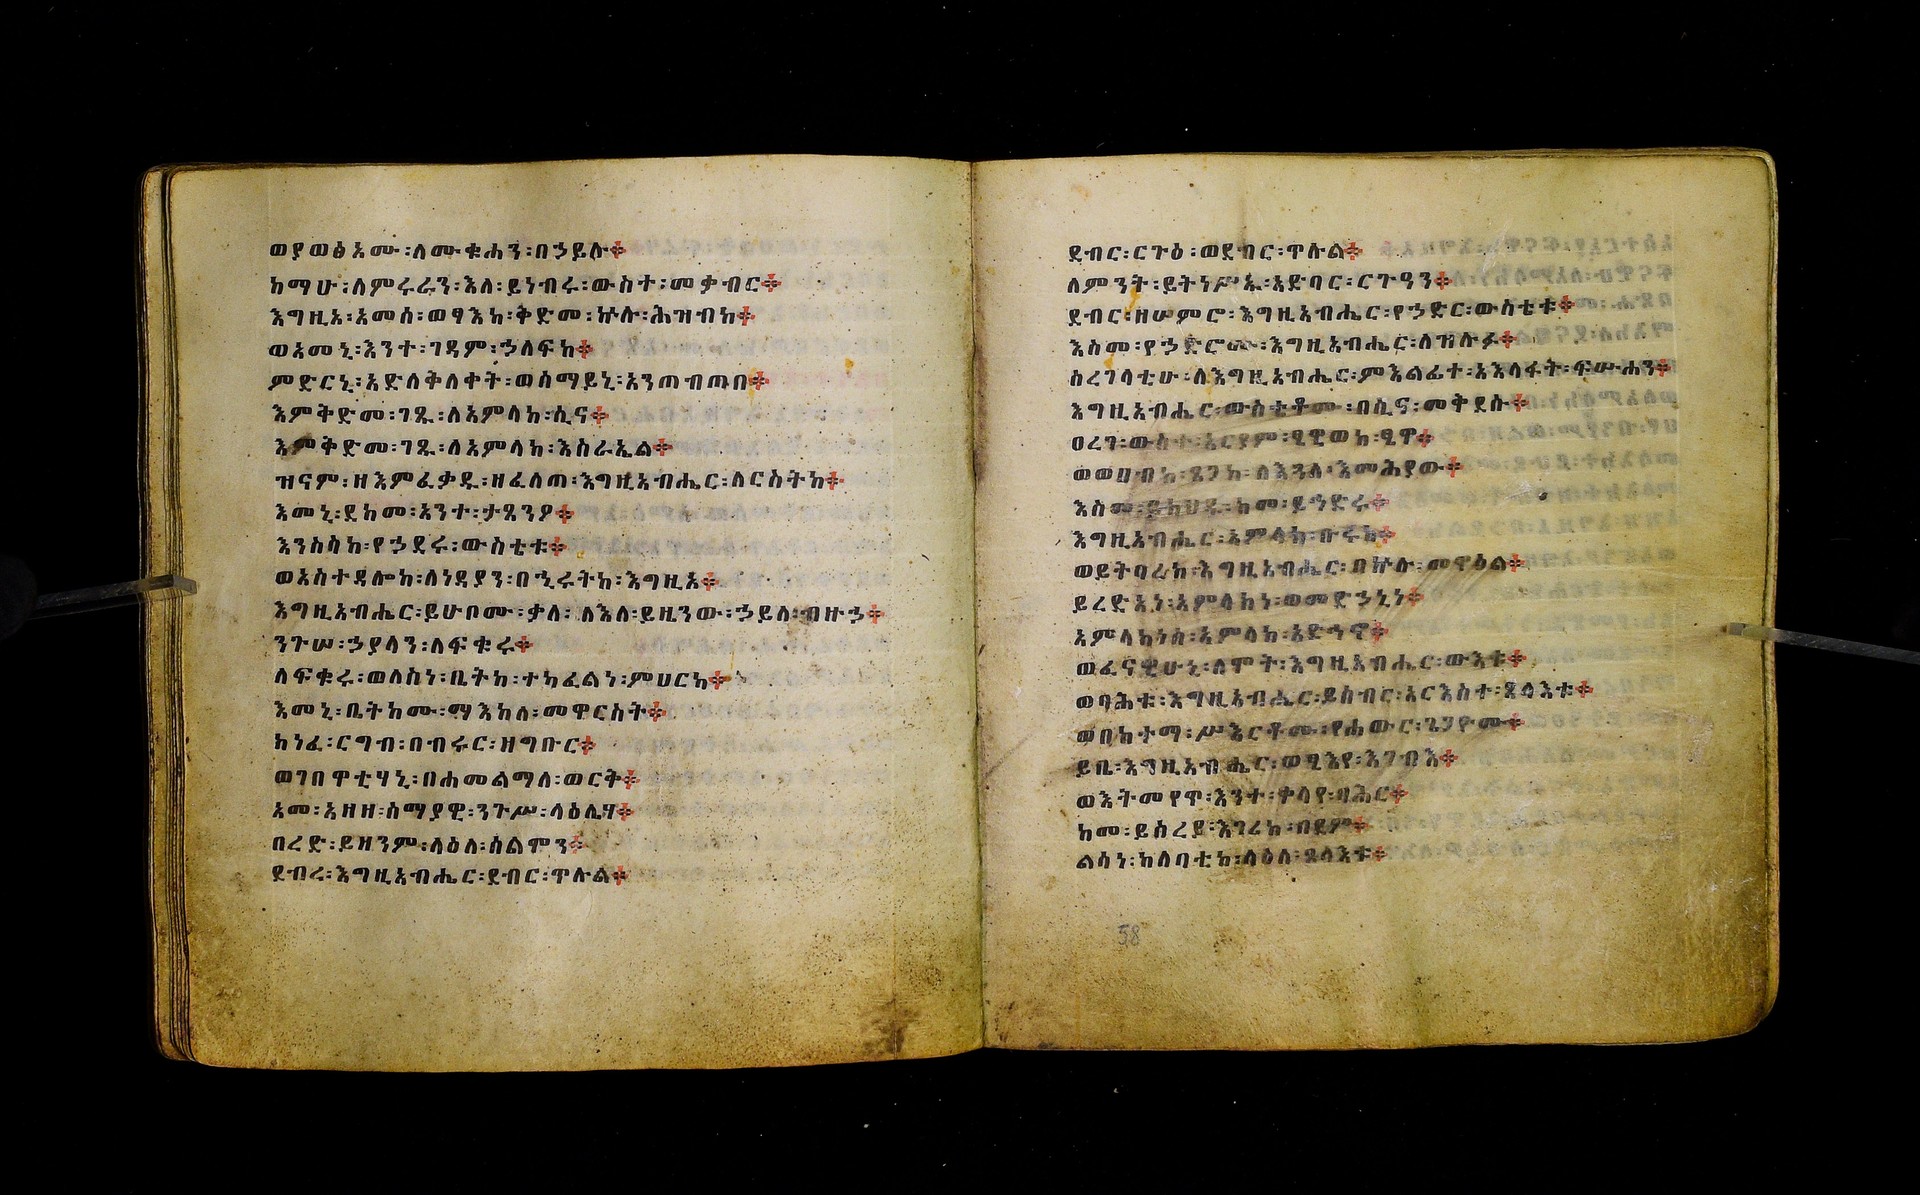 ወያወፅአሙ፡ለሙቁሐን፡በኃይሉ።
ከማሁ፡ለምሩራን፡እለ፡ይነብሩ፡ውስተ፡መቃብር።
እግዚአ፡አመሰ፡ወፃእከ፡ቅድመ፡ኵሉ፡ሕዝብከ።
ወአመኒ፡እንተ፡ገዳም፡ኃለፍከ።
ምድርኒ፡አድለቅለቀት፡ወሰማይኒ፡አንጠብጠበ።
እምቅድመ፡ገጹ፡ለአምላከ፡ሲና።
እምቅድመ፡ገጹ፡ለአምላከ፡እስራኤል።
ዝናም፡ዘእምፈቃዱ፡ዘፈለጠ፡እግዚአብሔር፡ለርስትከ።
እመኒ፡ደከመ፡አንተ፡ታጸንዖ።
እንስሳከ፡የኃደሩ፡ውስቴቱ።
ወአስተዳሎከ፡ለነዳያን፡በኂሩትከ፡እግዚአ።
እግዚአብሔር፡ይሁቦሙ፡ቃለ፡ለእለ፡ይዜንው፡ኃይለ፡ብዙኃ።
ንጉሠ፡ኃያላን፡ለፍቁሩ።
ለፍቁሩ፡ወለስነ፡ቤትከ፡ተካፈልነ፡ምህርካ።
እመኒ፡ቤትከሙ፡ማእከለ፡መዋርስት።
ክነፈ፡ርግብ፡በብሩር፡ዘግቡር።
ወገበዋቲሃኒ፡በሐመልማለ፡ወርቅ።
አመ፡አዘዘ፡ሰማያዊ፡ንጉሥ፡ላዕሌሃ።
በረድ፡ይዘንም፡ላዕለ፡ሰልሞን።
ደብረ፡እግዚአብሔር፡ደብር፡ጥሉል።
ደብር፡ርጉዕ፡ወደብር፡ጥሉል።
ለምንት፡ይትነሥኡ፡አድባር፡ርጉዓን።
ደብር፡ዘሠምሮ፡እግዚአብሔር፡የኃድር፡ውስቴቱ።
እስመ፡የኃድሮሙ፡እግዚአብሔር፡ለዝሉፉ።
ሰረገላቲሁ፡ለእግዚአብሔር፡ምእልፊተ፡አእላፋት፡ፍሡሐን።
እግዚአብሔር፡ውስቴቶሙ፡በሲና፡መቅደሱ።
ዐረገ፡ውስተ፡አርያም፡ፄዊወከ፡ፄዋ።
ወወሀብከ፡ጸጋከ፡ለእጓለ፡እመሕያው።
እስመ፡ይክህዱ፡ከመ፡ይኅድሩ።
እግዚአብሔር፡አምላክ፡ቡሩክ።
ወይትባረክ፡እግዚአብሔር፡በኵሉ፡መዋዕል።
ይረድአነ፡አምላክነ፡ወመድኃኒነ።
አምላክነሰ፡አምላከ፡አድኅኖ።
ወፈናዊሁኒ፡ለሞት፡እግዚአብሔር፡ውእቱ።
ወባሕቱ፡እግዚአብሔር፡ይሰብር፡አርእስተ፡ጸላእቱ።
ወበከተማ፡ሥእርቶሙ፡የሐውር፡ጌጋዮሙ።
ይቤ፡እግዚአብሔር፡ወፂእየ፡እገብእ።
ወእትመየጥ፡እንተ፡ቀላየ፡ባሕር።
ከመ፡ይሰረይ፡እገሪከ፡በደም።
ልሳነ፡ከለባቲከ፡ላዕለ፡ጸላእቱ።
58